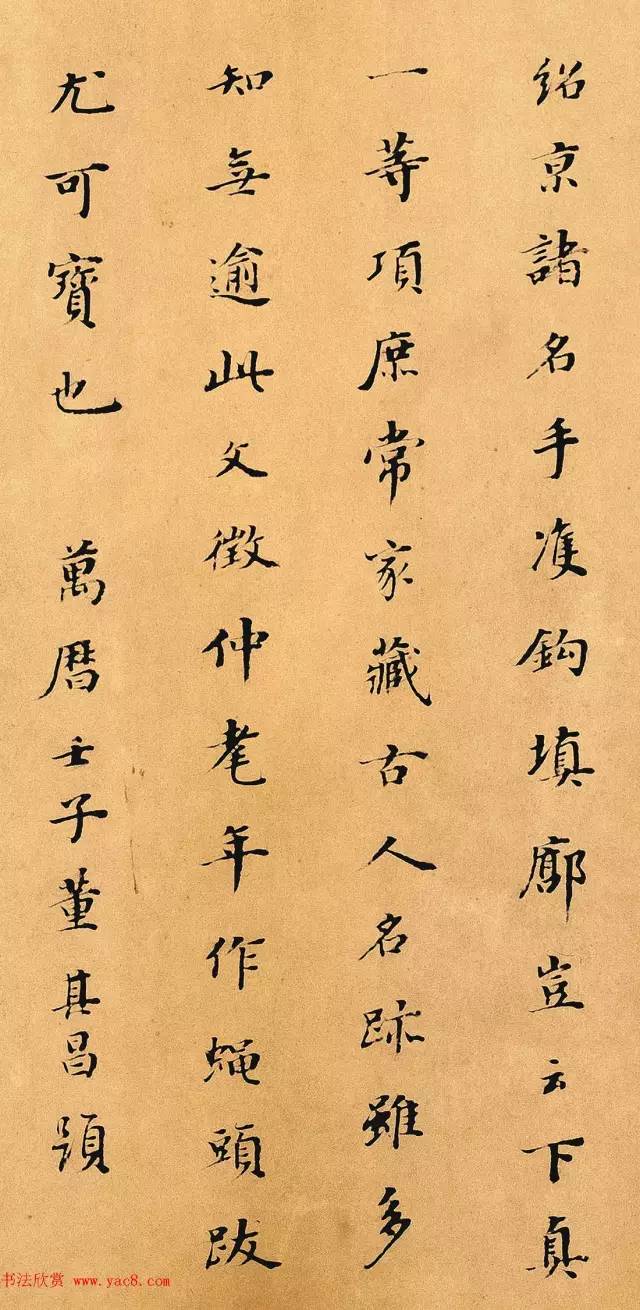 紹京諸名手雙鈎填廓豈云下真
一等項庶常家藏古人名跡雖多
知無逾此文徵仲耄年作蝇頭跋
尤可寶也 萬曆壬子董其昌題
书法欣赏 www.yac8.com